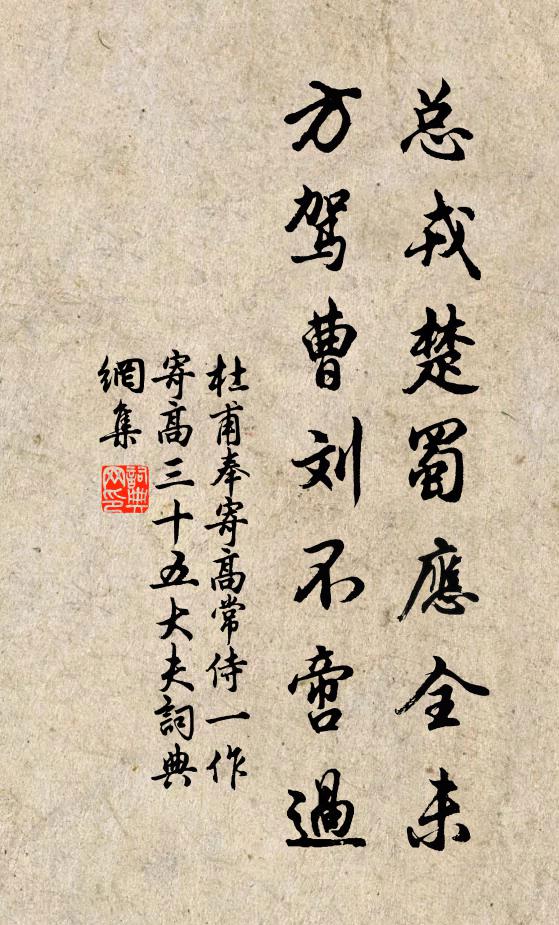 总戎楚蜀應全未
方驾曹刘不啻過
杜甫奉寄高常侍一作
寄高三十五大夫詞典
網集
詞典
网印